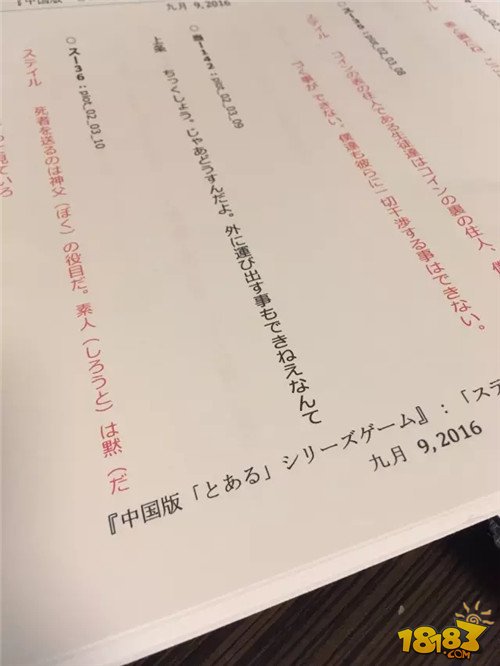 『中国版
九月 9, 2016
コインの表の住人である生徒達はコインの裏の住人、
事ができない。僕達も彼らに一切干渉する事はできない。
○当ー142：pict_02_03_09
上条　ちっくしょう。じゃあどうすんだよ。外に運び出す事もできねえなんて
○スー36：pict_02_03_10
ステイル　死者を送るのは神父（ぼく）の役目だ。素人（しろうと）は黙（だ
見ていろ
『中国版「とある」シリーズゲーム』：「ステ
九月 9, 2016
18183
.COM